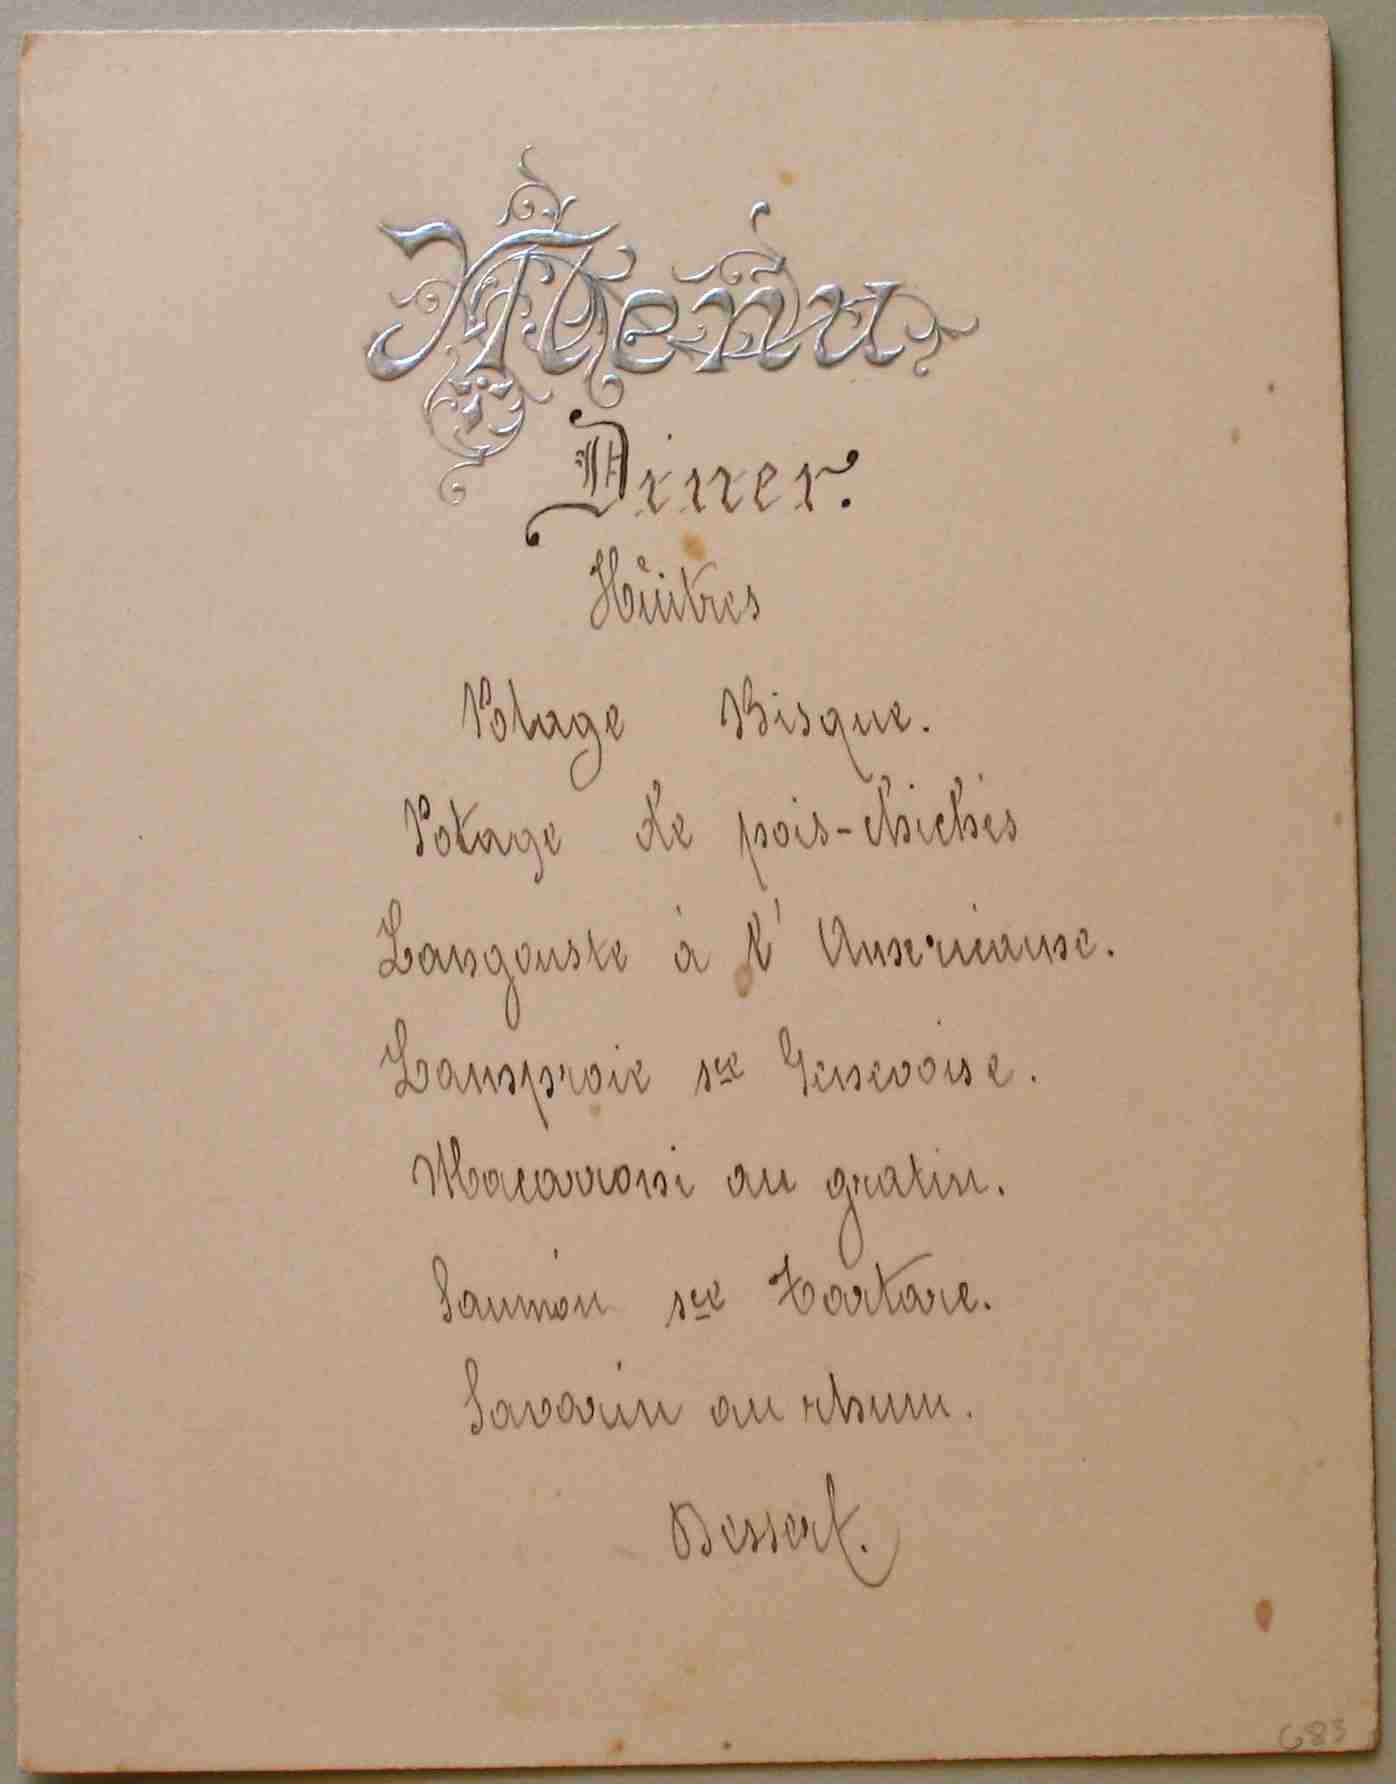 Menu
Diner.
Huîtres
Potage Bisque.
Potage de pois-chiches
Langouste à l'Américaine.
Lamproie sce Genevoise.
Macarroni au gratin.
Saumon sce Tartare.
Savarin au rhum.
Dessert.
683